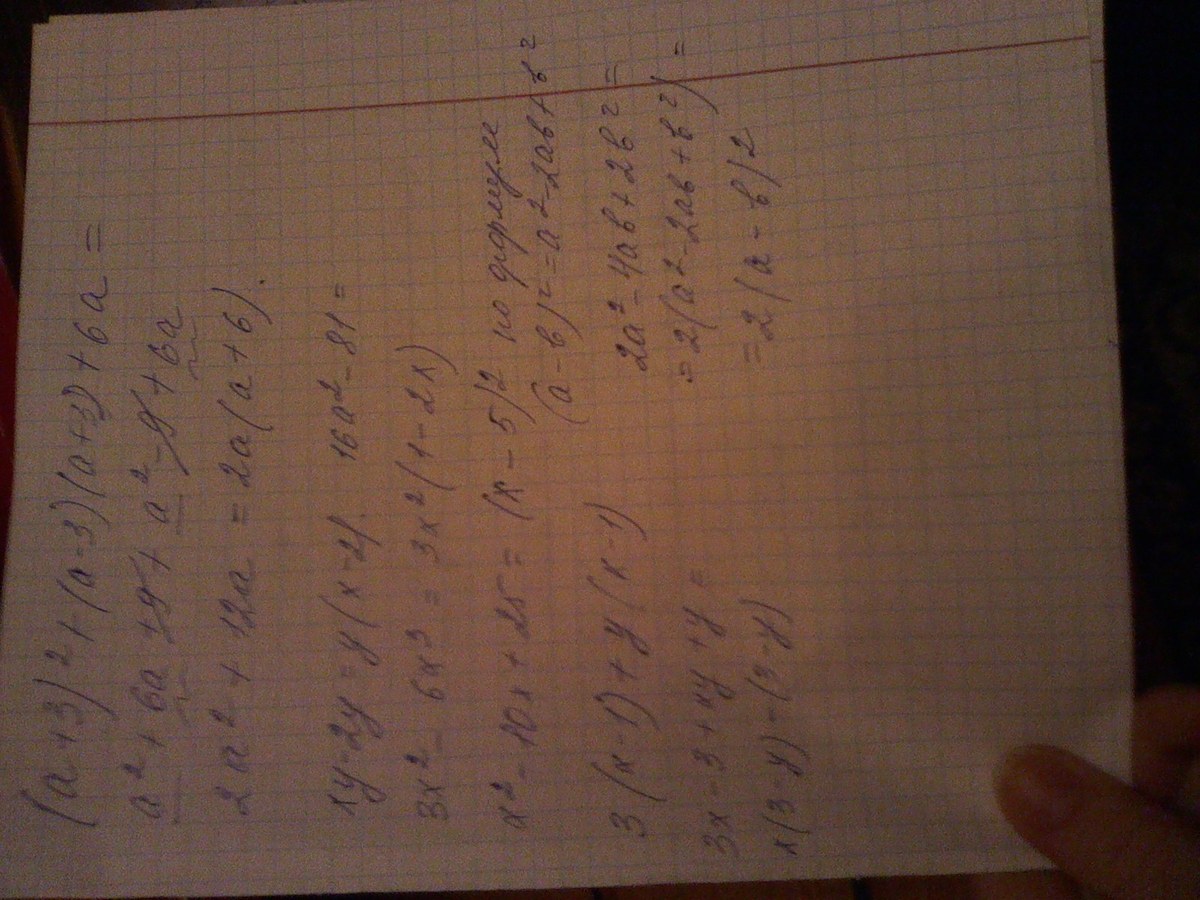 (a+3)2+(a-3)(a+3)+6a=
a2+6a+9+a2-9+6a
2a2+12a=2a(a+6).
xy-2y=y(x-2). 16a2-81=
3x2-6x3=3x2(1-2x)
x2-10x+25=(x-5)2 по формуле
(a-b)2=a2-2ab+b2
3(x-1)+y(x-1) 2a2-4ab+2b2=
3x-3+xy+y= =2(a2-2ab+b2)=
x(3-y)-(3-y) =2(a-b)2